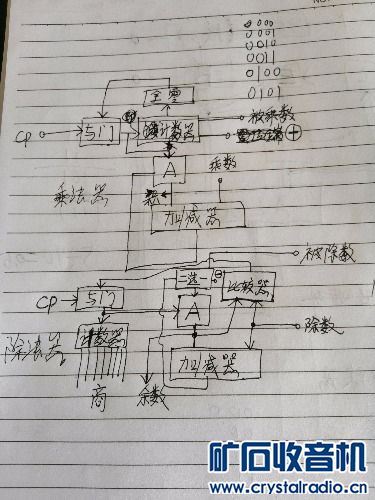 0000
0001
0010
0011
0100
0101
全零
CP
与门
计数器
被乘数
置位端
A
乘数
乘法器
加减器
被除数
二选一
比较器
CP
与门
A
除数
除法器
计数器
加减器
商
余数
矿石收音机
www.crystalradio.cn